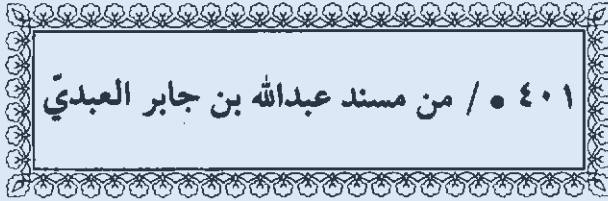 ٤٠١ • / من مسند عبدالله بن جابر العبديّ